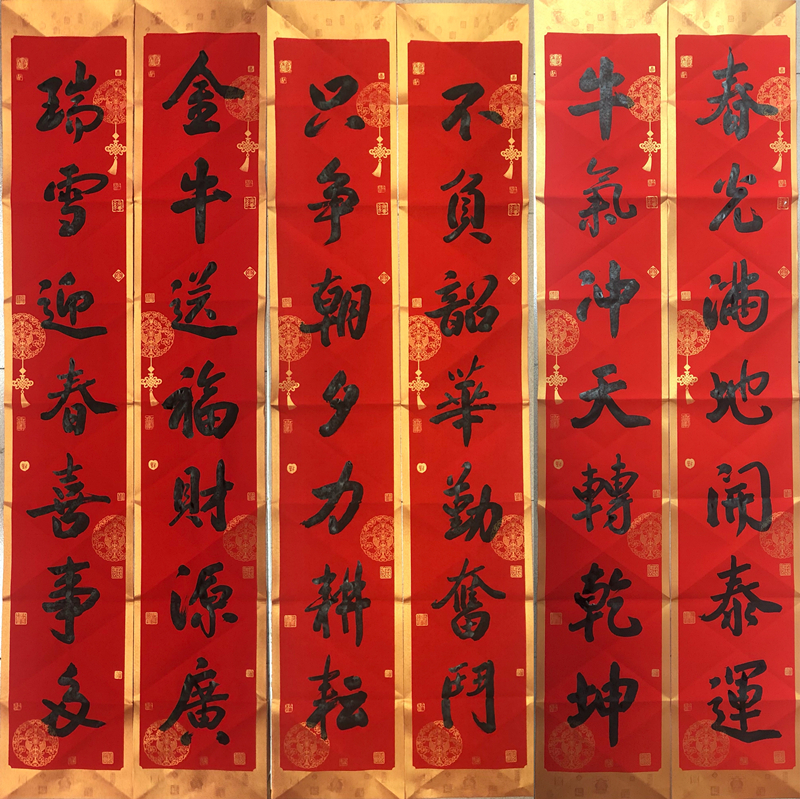 春光满地開泰運
牛氣冲天轉乾坤
不負韶華勤奮鬥
只争朝夕力耕耘
金牛送福財源廣
瑞雪迎春喜事多